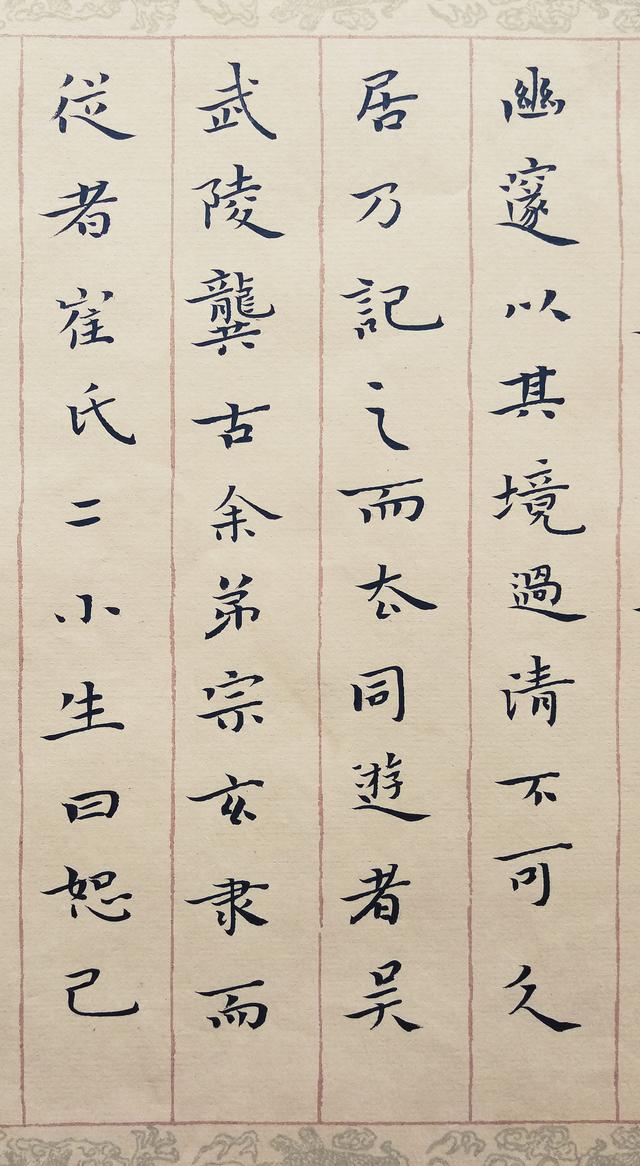 幽邃以其境過清不可久
居乃記之而去同遊者吴
武陵龔古余弟宗玄隸而
從者崔氏二小生曰恕己